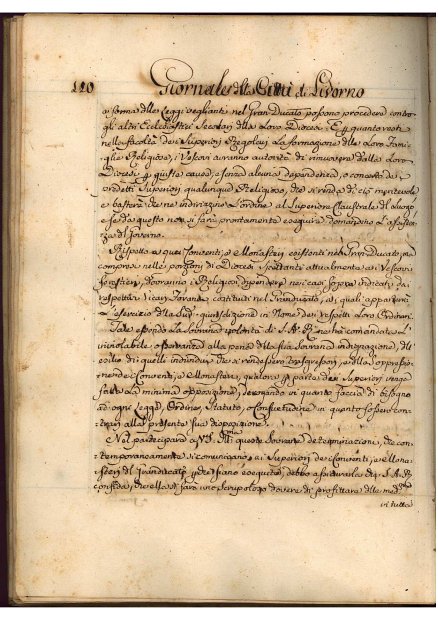 120 Giornale della Città di Livorno
a forma delle Leggi veglianti nel Gran Ducato possono procedere contro
gli altri Ecclesiastici Secolari della Loro Diocesi. E quanto resti
nella facoltà dei Superiori Regolari la formazione delle Loro Fami-
glie Religiose, i Vescovi avranno autorità di rimuovere dalla Loro
Diocesi per giusta causa, e senza alcuna dependenza, o concerto da
predetti Superiori qualunque Religioso, che si renda di ciò meritevole
e basterà che ne indirizzino l'ordine al Superiore Claustrale del luogo
e se da questo non si farà prontamente eseguire domandino l'assisten-
za del Governo.
Rispetto a quei Conventi, e Monasteri esistenti nel Gran Ducato, ma
compresi nelle porzioni di Diocesi spettanti attualmente a Vescovi
Forestieri, dovranno i Religiosi dipendere nei casi sopra indicati dai
respettivi Vicari Foranei costituiti nel Granducato, ai quali apparterrà
l'esercizio della Sua giurisdizione in Nome dei respettivi Loro Ordinari.
Tale essendo La Sovrana volontà di S. A. R. ne ha comandata L'
inviolabile osservanza alla pena della sua Sovrana indignazione, dell'
esilio di quelli individui che si rendessero trasgressori, e della soppressio-
ne dei Conventi, e Monasteri, qualora per parte dei Superiori venga
fatta la minima opposizione, derogando in quanto faccia di bisogno
ad ogni Legge, Ordine, Statuto, o Consuetudine in quanto fossero con-
trari alla presente sua disposizione.
Nel participare a VS. Ill.ma queste Sovrane determinazioni, che con-
temporaneamente si comunicano ai Superiori dei Conventi, e Mona-
steri del Granducato perché siano eseguite, debbo assicurarla che S. A. R.
confida, che ella si farà uno scrupoloso dovere di profittare delle med.me
in tutta